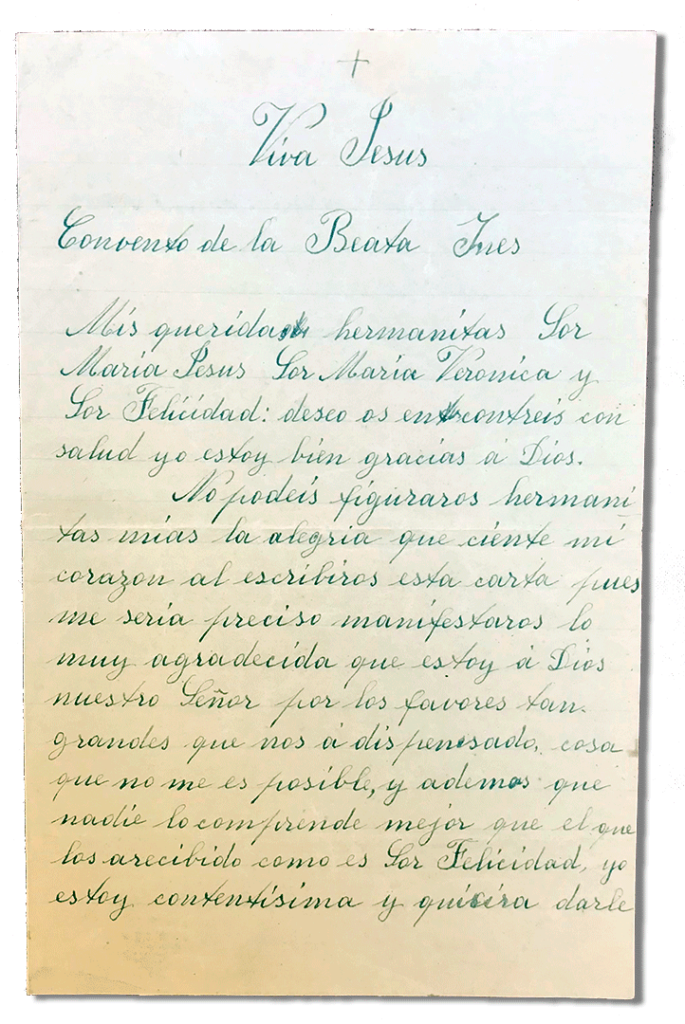 +
Viva Jesus
Convento de la Beata Ines
Mis queridas hermanitas Sor
Maria Jesus Sor Maria Veronica y
Sor Felicidad: deseo os encontreis con
salud yo estoy bien gracias á Dios.
No podeis figuraros hermani
tas mias la alegria que ciente mi
corazon al escribiros esta carta pues
me seria preciso manifestaros lo
muy agradecida que estoy á Dios
nuestro Señor por los favores tan
grandes que nos á dispensado, cosa
que no me es posible, y ademas que
nadie lo comprende mejor que el que
los arecibido como es Sor Felicidad, yo
estoy contentisima y quisiera darle